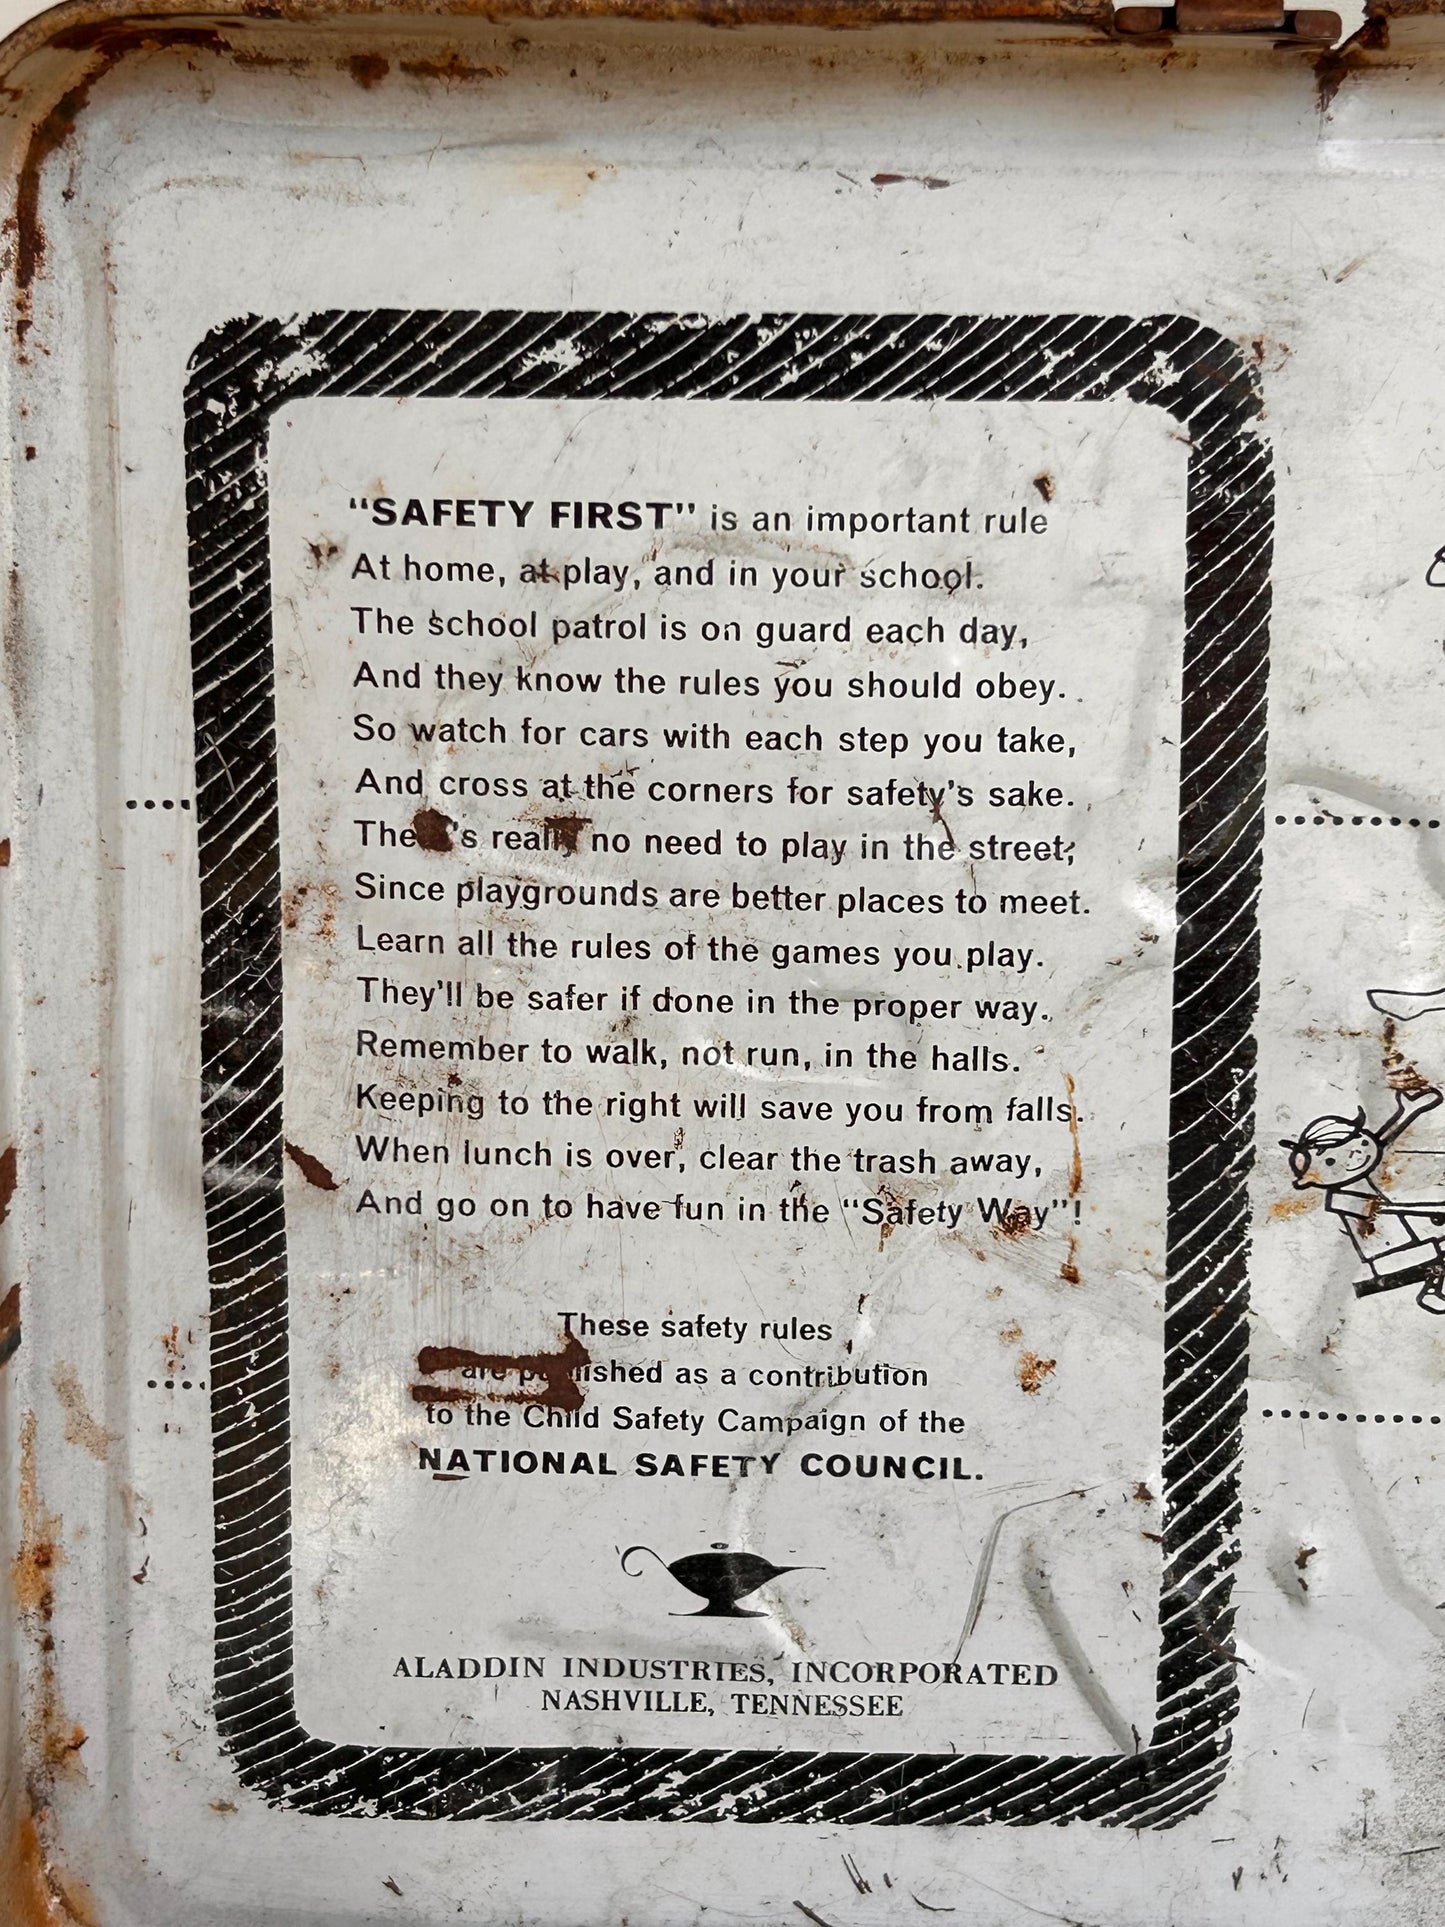 "SAFETY FIRST" is an important rule
At home, at play, and in your school.
The school patrol is on guard each day,
And they know the rules you should obey.
So watch for cars with each step you take,
And cross at the corners for safety's sake.
There's really no need to play in the street;
Since playgrounds are better places to meet.
Learn all the rules of the games you play.
They'll be safer if done in the proper way.
Remember to walk, not run, in the halls.
Keeping to the right will save you from falls.
When lunch is over, clear the trash away,
And go on to have fun in the "Safety Way"!
These safety rules
are published as a contribution
to the Child Safety Campaign of the
NATIONAL SAFETY COUNCIL.
ALADDIN INDUSTRIES, INCORPORATED
NASHVILLE, TENNESSEE